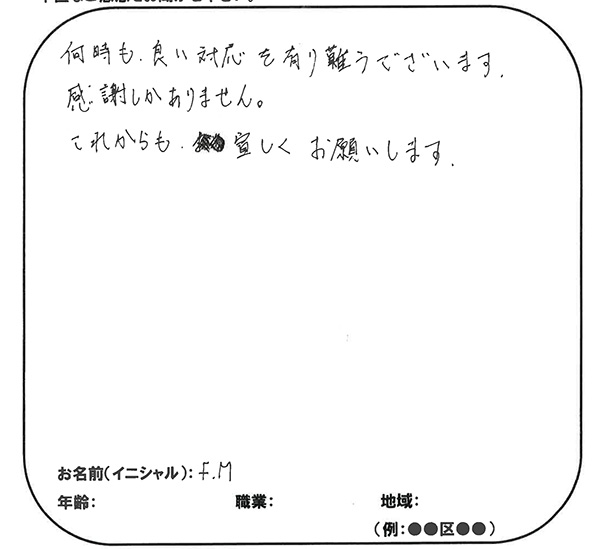 何時も、良い対応を有り難うございます.
感謝しかありません。
これからも、宜しくお願いします.
お名前(イニシャル): F.M
年齢:
職業:
地域:
(例:●●区●●)